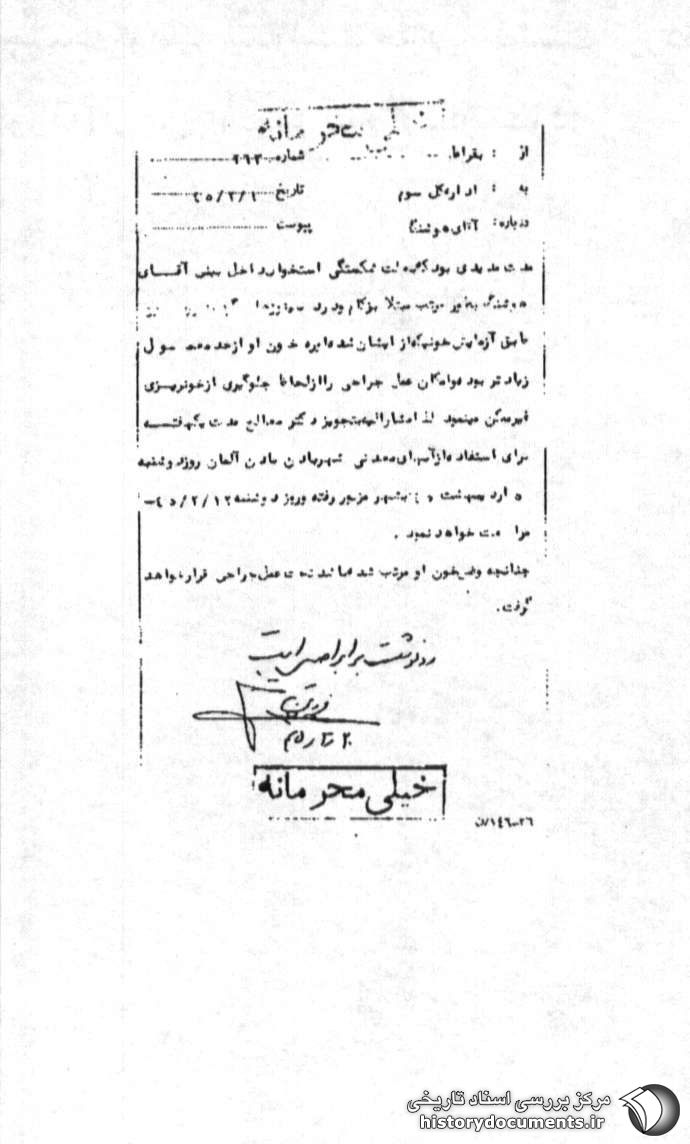 خیلی محرمانه
از : بقراط شماره
به : اداره کل سوم تاریخ
درباره: آقای هوشنگ پیوست
مدت مدیدی بود که بعلت شکستگی استخوان داخل بینی آقای
هوشنگ بطور مرتب مبتلا بزکام و درد
طبق آزمایش خونیکه از ایشان شد دایره خون او از حد معمول
زیادتر بود و امکان عمل جراحی را از لحاظ جلوگیری از خونریزی
غیرممکن مینمود لذا مشارالیه بتجویز دکتر معالج مدت یکهفته
برای استفاده از آبهای معدنی شهر بادن بادن آلمان روز دوشنبه
۵ اردیبهشت بشهر مزبور رفته و روز دوشنبه ۴۵/۲/۱۲
مراجعت خواهد نمود .
چنانچه وضع خون او مرتب شد تحت عمل جراحی قرار خواهد
گرفت .
رونوشت برابر اصل است
خیلی محرمانه
مرکز بررسی اسناد تاریخی
historydocuments.ir